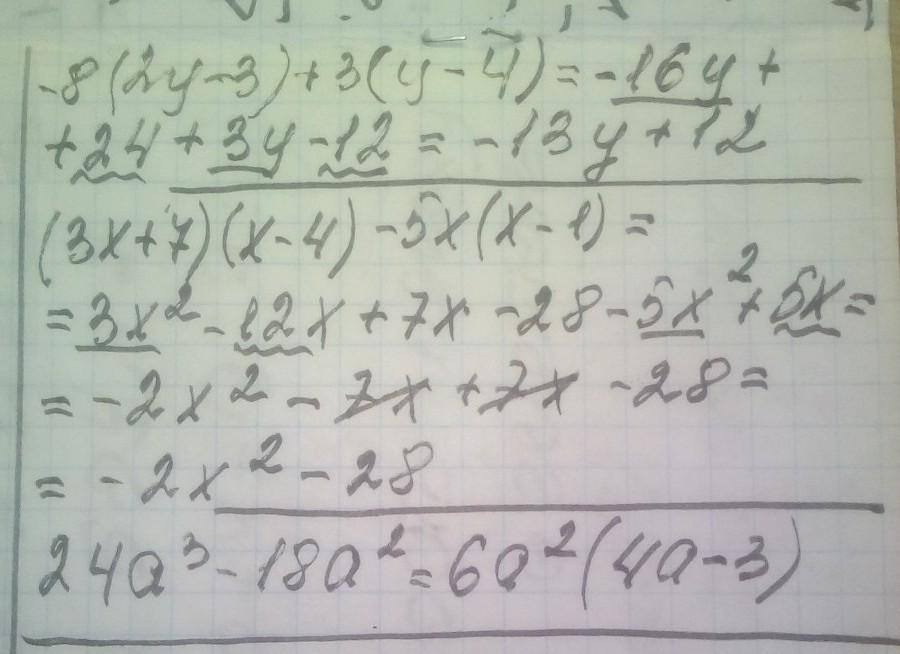 -8(2y-3)+3(y-4)=-16y+
+24+3y-12=-13y+12
(3x+7)(x-4)-5x(x-1)=
=3x²-12x+7x-28-5x²+5x=
=-2x²-7x+7x-28=
=-2x²-28
24a³-18a²=6a²(4a-3)